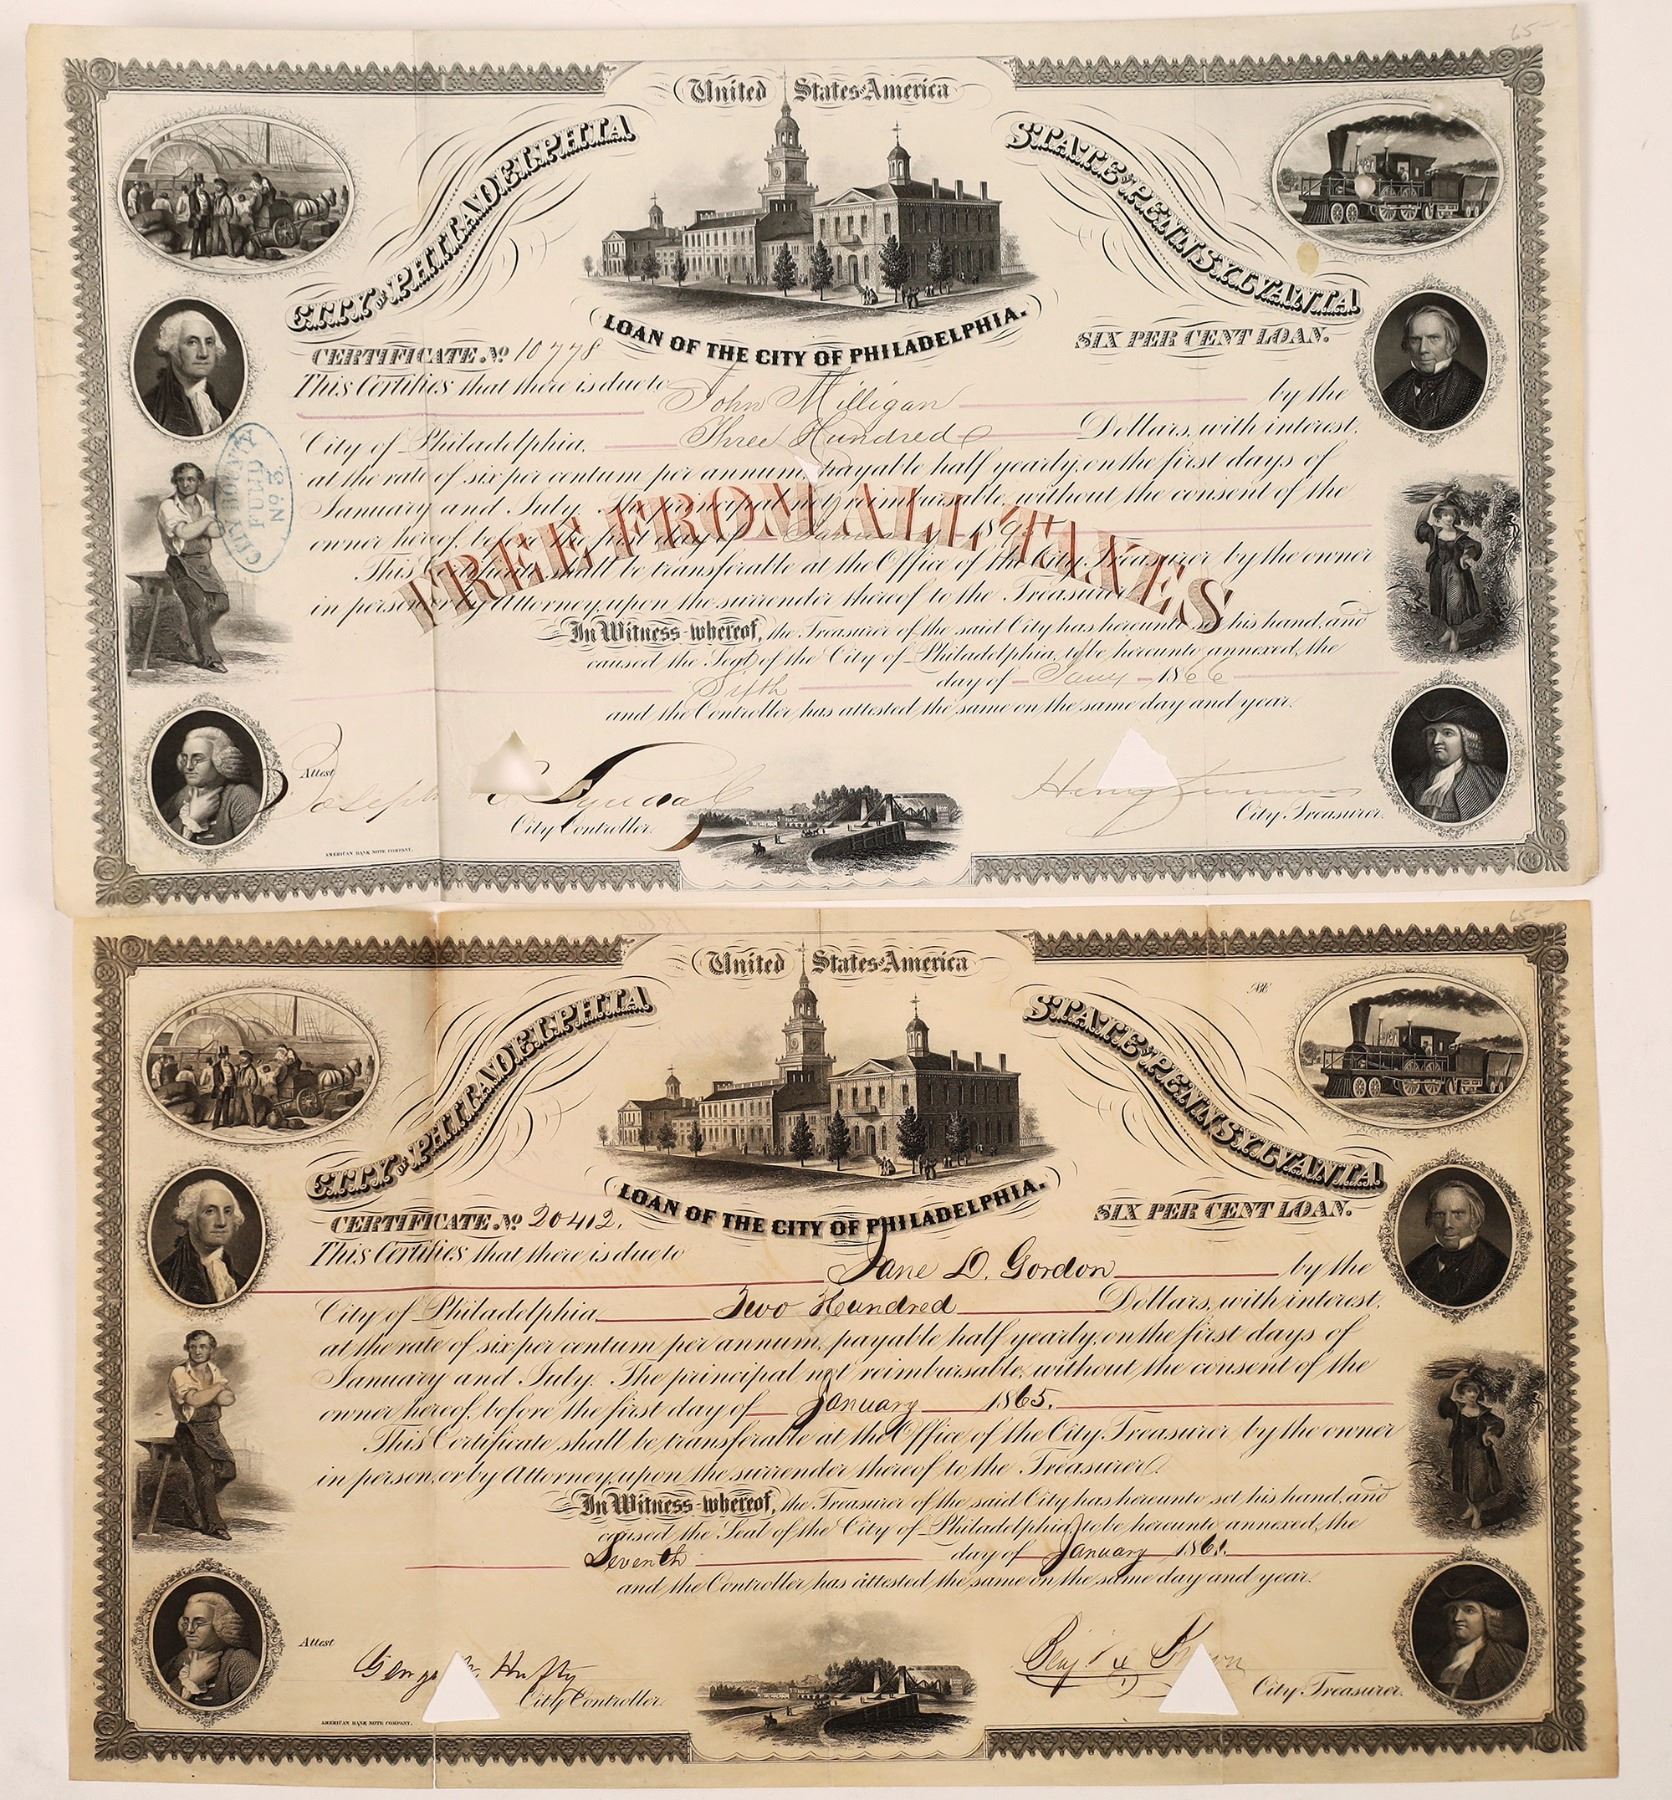 65-
United States of America
CITY OF PHILADELPHIA
STATE OF PENNSYLVANIA
LOAN OF THE CITY OF PHILADELPHIA.
SIX PER CENT LOAN.
CERTIFICATE No. 10778
This Certifies that there is due to John Milligan by the
City of Philadelphia, Three Hundred Dollars, with interest,
at the rate of six per centum per annum, payable half yearly, on the first days of
January and July. The principal not reimbursable, without the consent of the
owner hereof, before the first day of January 1895
FREE FROM ALL TAXES
This Certificate shall be transferable at the Office of the City Treasurer by the owner
in person, or by Attorney, upon the surrender thereof to the Treasurer
In Witness whereof, the Treasurer of the said City has hereunto set his hand, and
caused the Seal of the City of Philadelphia, to be hereunto annexed, the
Fifth day of Jany 1866
and the Controller, has attested the same on the same day and year.
CITY BOUNTY FUND No. 3
Attest
Joseph
City Controller.
Henry
City Treasurer.
AMERICAN BANK NOTE COMPANY.
65-
United States of America
CITY OF PHILADELPHIA
STATE OF PENNSYLVANIA
LOAN OF THE CITY OF PHILADELPHIA.
SIX PER CENT LOAN.
CERTIFICATE No. 20412.
This Certifies that there is due to Jane D. Gordon by the
City of Philadelphia, Two Hundred Dollars, with interest,
at the rate of six per centum per annum, payable half yearly, on the first days of
January and July. The principal not reimbursable, without the consent of the
owner hereof, before the first day of January 1865.
This Certificate shall be transferable at the Office of the City Treasurer by the owner
in person, or by Attorney, upon the surrender thereof to the Treasurer.
In Witness whereof, the Treasurer of the said City has hereunto set his hand, and
caused the Seal of the City of Philadelphia, to be hereunto annexed, the
Seventh day of January 1861.
and the Controller, has attested the same on the same day and year.
Attest
George W. Hufty
City Controller.
Benj.
City Treasurer.
AMERICAN BANK NOTE COMPANY.